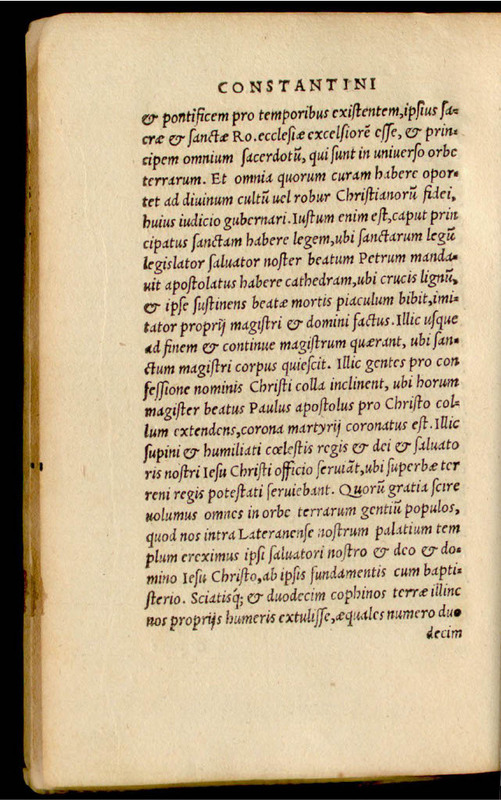 CONSTANTINI
& pontificem pro temporibus existentem, ipsius sa-
cræ & sanctæ Ro. ecclesiæ excelsiorē esse, & prin-
cipem omnium sacerdotū, qui sunt in uniuerso orbe
terrarum. Et omnia quorum curam habere opor-
tet ad diuinum cultū uel robur Christianorū fidei,
huius iudicio gubernari. Iustum enim est, caput prin
cipatus sanctam habere legem, ubi sanctarum legū
legislator saluator noster beatum Petrum manda-
uit apostolatus habere cathedram, ubi crucis lignū,
& ipse sustinens beatæ mortis piaculum bibit, imi-
tator proprij magistri & domini factus. Illic usque
ad finem & continue magistrum quærant, ubi san-
ctum magistri corpus quiescit. Illic gentes pro con
fessione nominis Christi colla inclinent, ubi horum
magister beatus Paulus apostolus pro Christo col-
lum extendens, corona martyrij coronatus est. Illic
supini & humiliati cœlestis regis & dei & saluato
ris nostri Iesu Christi officio seruiāt, ubi superbæ ter
reni regis potestati seruiebant. Quorū gratia scire
uolumus omnes in orbe terrarum gentiū populos,
quod nos intra Lateranense nostrum palatium tem
plum ereximus ipsi saluatori nostro & deo & do-
mino Iesu Christo, ab ipsis fundamentis cum bapti-
sterio. Sciatisq́; & duodecim cophinos terræ illinc
nos proprijs humeris extulisse, æquales numero duo
decim